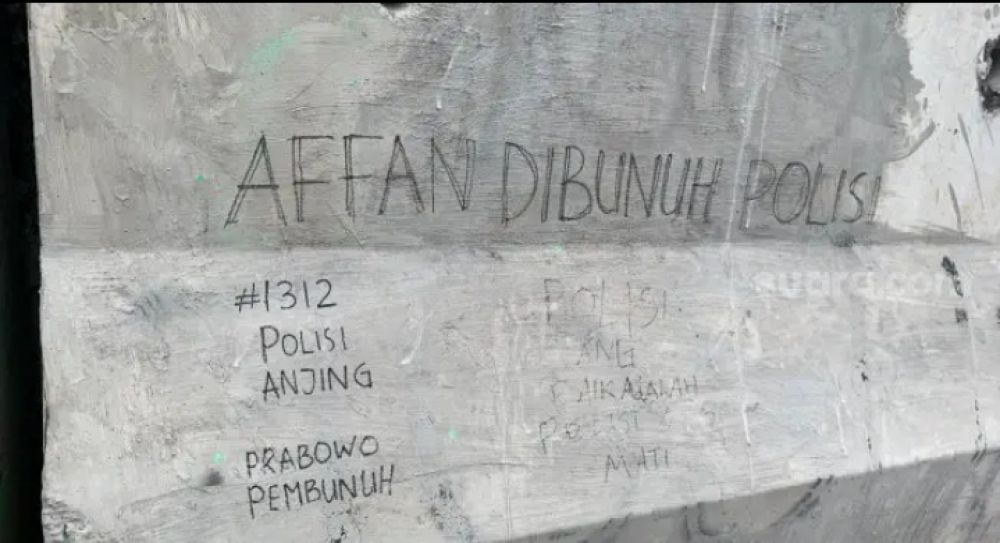 AFFAN DIBUNUH POLISI
#1312
POLISI
ANJING
PRABOWO
PEMBUNUH
POLISI
ADALAH
POLISI
MATI
suara.com